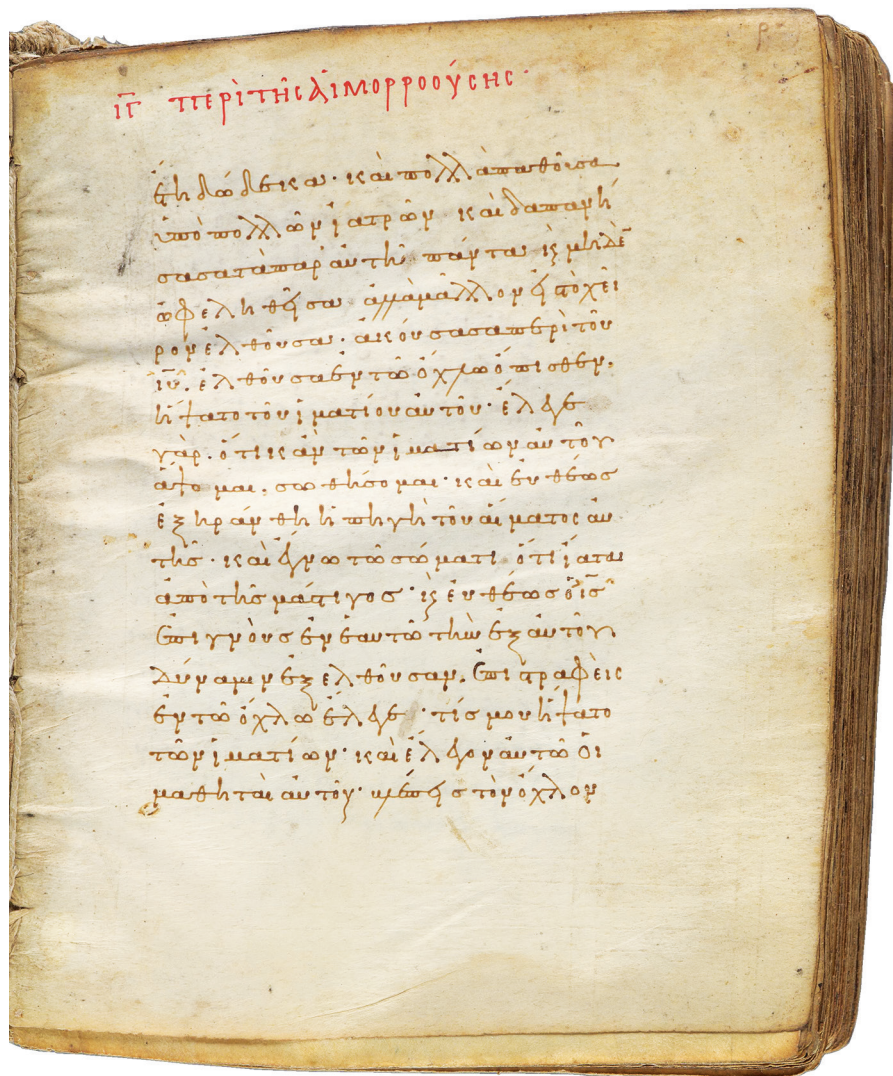 ιγ περὶ τῆς αἱμορροούσης
ἔτη δώδεκα· καὶ πολλὰ παθοῦσα
ὑπὸ πολλῶν ἰατρῶν· καὶ δαπανή
σασα τὰ παρ' αὐτῆς πάντα· καὶ μηδὲν
ὠφεληθεῖσα· ἀλλὰ μᾶλλον εἰς τὸ χεῖ
ρον ἐλθοῦσα· ἀκούσασα περὶ τοῦ
ἰῦ. ἐλθοῦσα ἐν τῶ ὄχλω ὄπισθεν.
ἥψατο τοῦ ἱματίου αὐτοῦ· ἔλεγε
γὰρ. ὅτι κἂν τῶν ἱματίων αὐτοῦ
ἅψομαι, σωθήσομαι· καὶ εὐθέως
ἐξηράνθη ἡ πηγὴ τοῦ αἵματος αὐ
τῆς· καὶ ἔγνω τῶ σώματι ὅτι ἴαται
ἀπὸ τῆς μάστιγος· καὶ εὐθέως ὁ ις
ἐπιγνοὺς ἐν ἑαυτῶ τὴν ἐξ αὐτοῦ
δύναμιν ἐξελθοῦσαν. ἐπιστραφεὶς
ἐν τῶ ὄχλω ἔλεγε· τίς μου ἥψατο
τῶν ἱματίων· καὶ ἔλεγον αὐτῶ οἱ
μαθηταὶ αὐτοῦ· βλέπεις τὸν ὄχλον